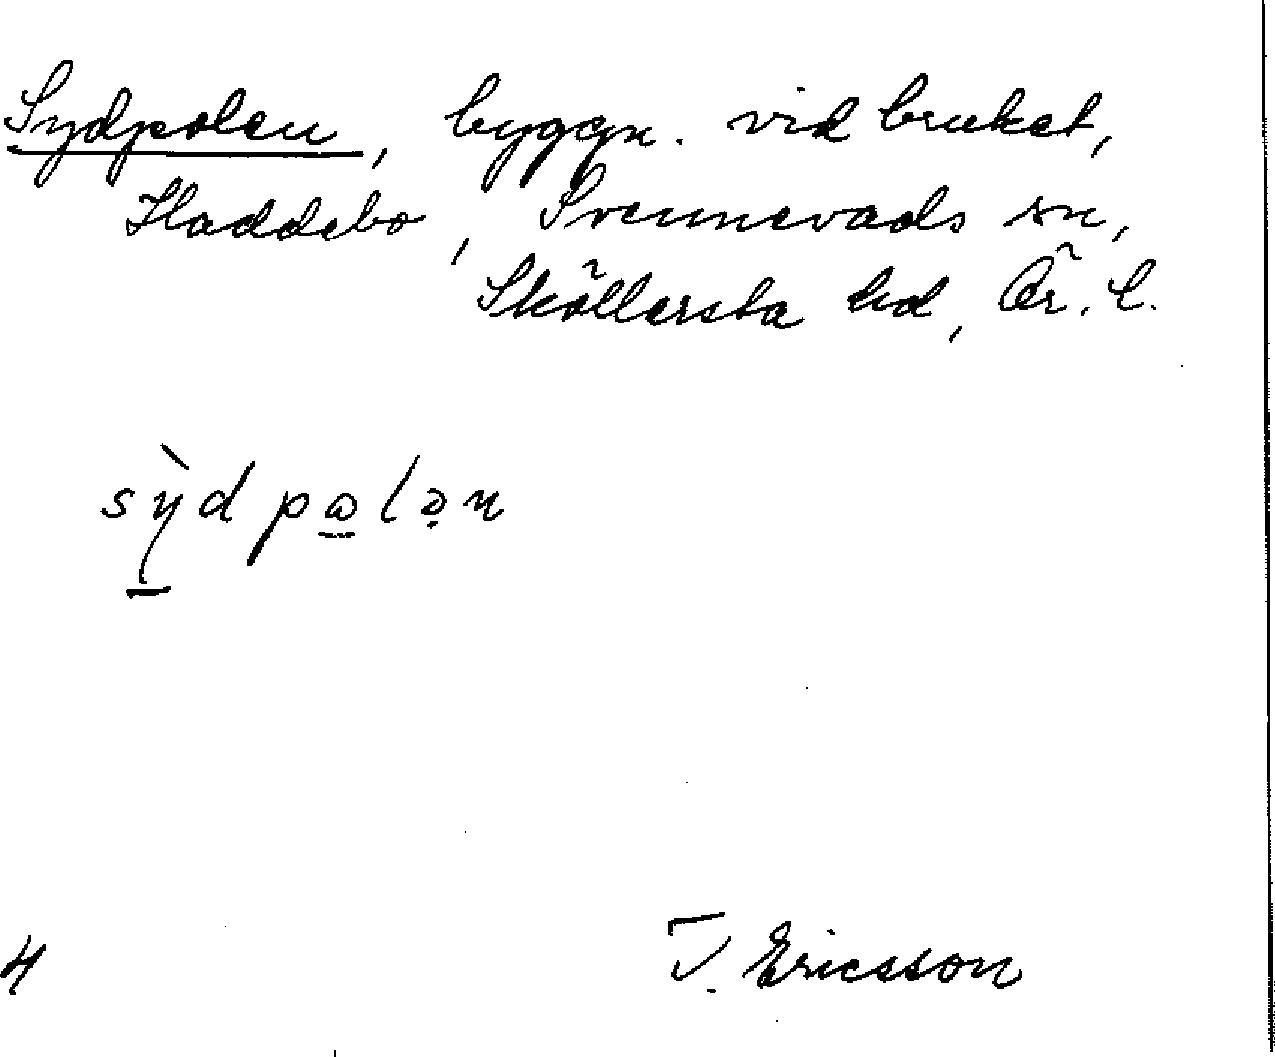 Sydpolen, byggn. vid bruket,
Haddebo, Svennevads sn,
Sköllersta hd, Ör. l.
sỳdpωlən
4
T. Ericsson